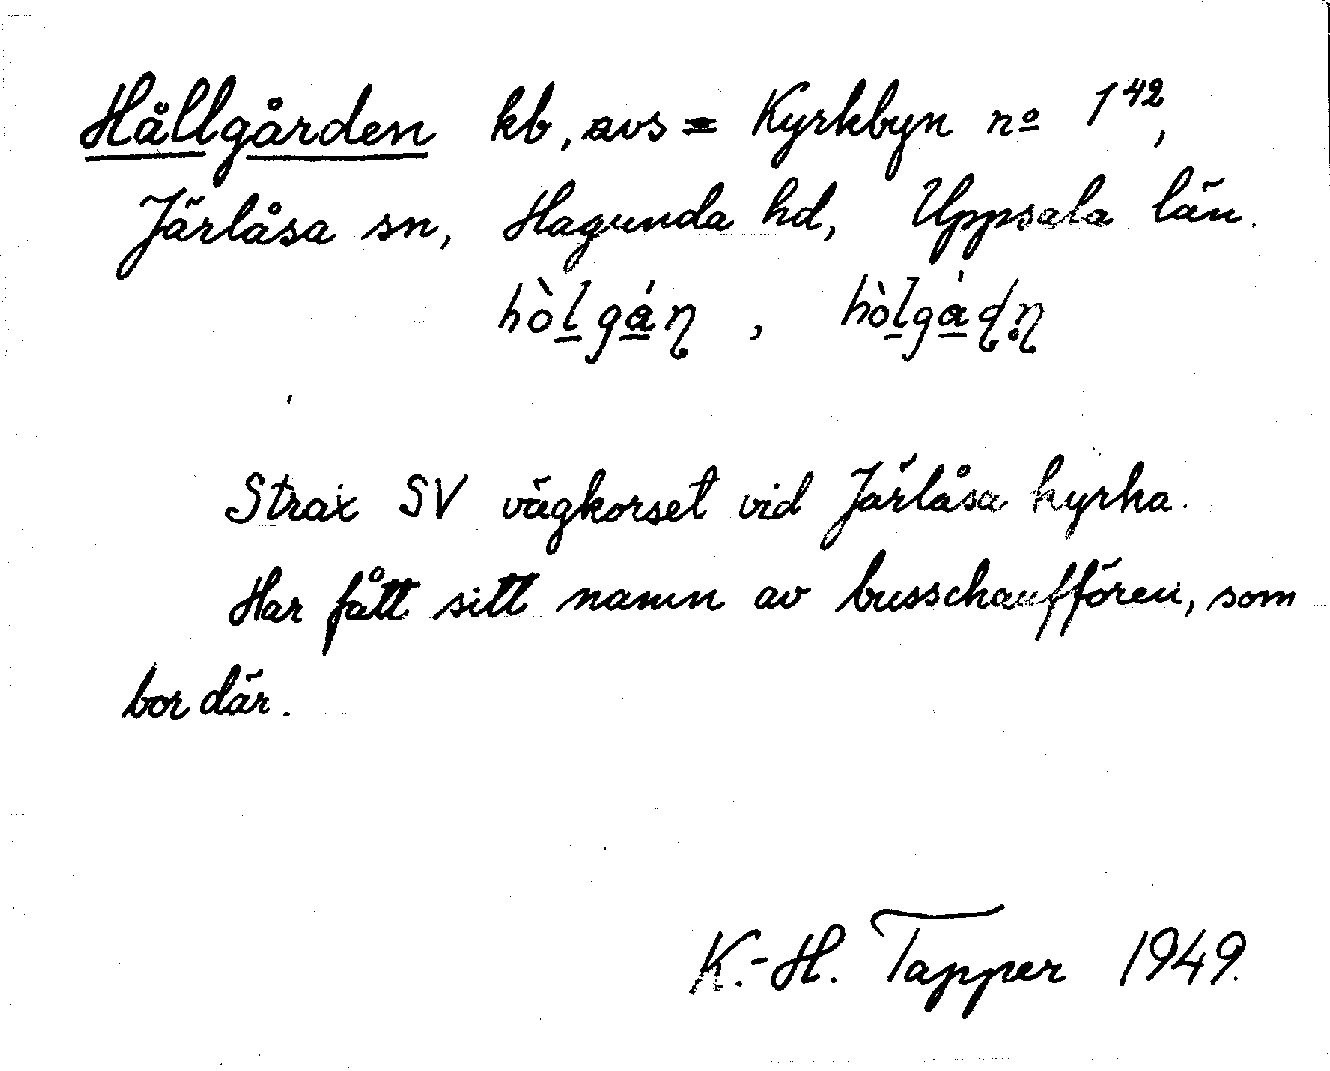 Hållgården kb, avs = Kyrkbyn no 1⁴²,
Järlåsa sn, Hagunda hd, Uppsala län.
hòlgáɳ , hòlgáɖɳ
Strax SV vägkorset vid Järlåsa kyrka.
Har fått sitt namn av busschauffören, som
bor där.
K.-H. Tapper 1949.